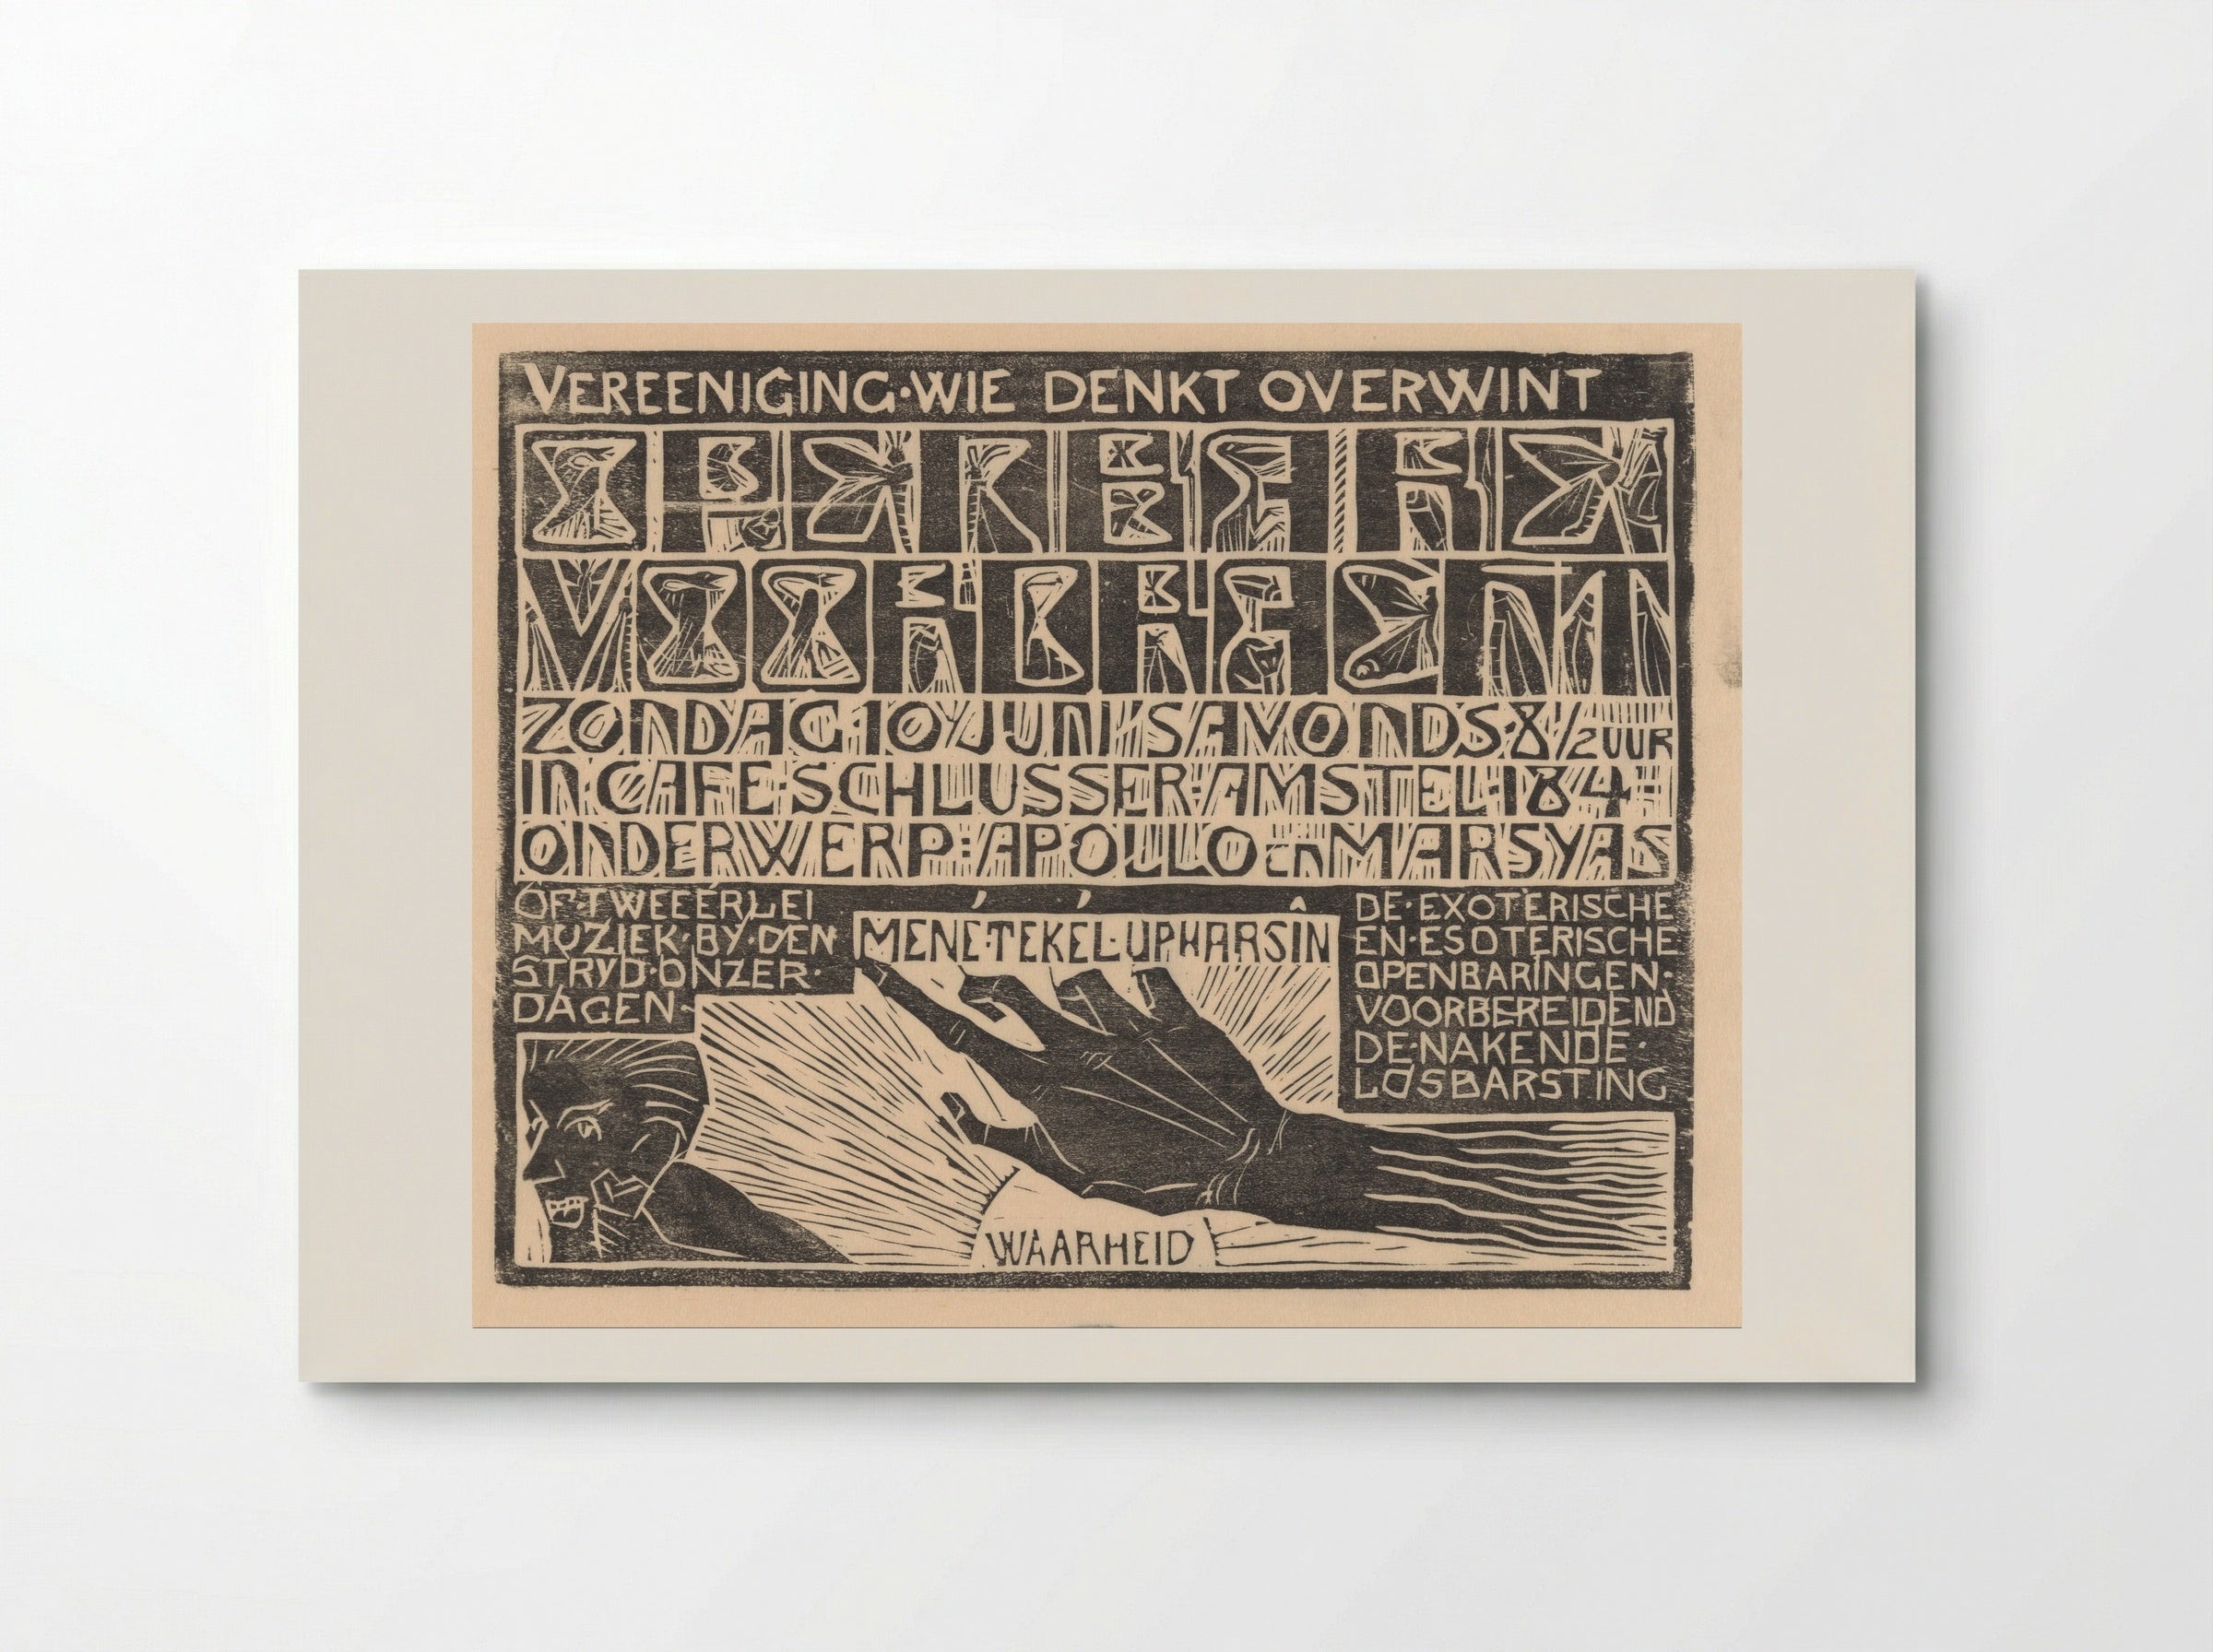 VEREENIGING·WIE DENKT OVERWINT
OPENBARE
VOORDRACHT
ZONDAG 10 JUNI 'S AVONDS 8 1/2 UUR
IN CAFE SCHLUSSER AMSTEL 184
ONDERWERP: APOLLO en MARSYAS
OF·TWEEËRLEI
MUZIEK·BY·DEN
STRYD·ONZER·
DAGEN·
MENÉ·TEKÉL·UPHARSÎN
DE·EXOTERISCHE
EN·ESOTERISCHE
OPENBARINGEN·
VOORBEREIDEND
DE·NAKENDE·
LOSBARSTING
WAARHEID